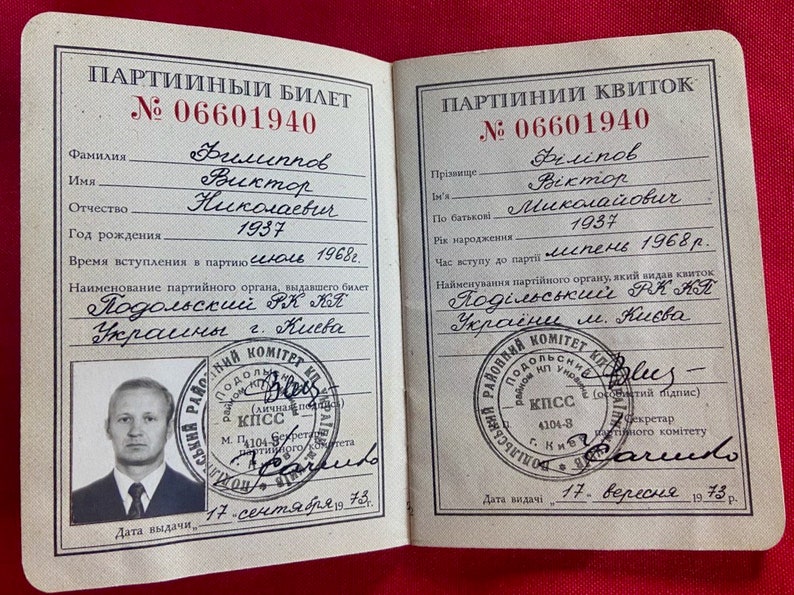 ПАРТИЙНЫЙ БИЛЕТ
№ 06601940
Фамилия Филиппов
Имя Виктор
Отчество Николаевич
Год рождения 1937
Время вступления в партию июль 1968г.
Наименование партийного органа, выдавшего билет
Подольский РК КП
Украины г. Киева
(личная подпись)
М. П. Секретарь
партийного комитета
Дата выдачи „17 " сентября 1973г.
ПОДІЛЬСЬКИЙ РАЙОННИЙ КОМІТЕТ КП УКРАЇНИ м. КИЇВ
Подольский
райком КП Украины
КПСС
4104-8
г. Киев
ПАРТІЙНИЙ КВИТОК
№ 06601940
Прізвище Філіпов
Ім'я Віктор
По батькові Миколайович
Рік народження 1937
Час вступу до партії липень 1968р.
Найменування партійного органу, який видав квиток
Подільський РК КП
України м. Києва
(особистий підпис)
Секретар
партійного комітету
Дата видачі „17 " вересня 1973 р.
ПОДІЛЬСЬКИЙ РАЙОННИЙ КОМІТЕТ КП УКРАЇНИ м. КИЇВ
Подольский
райком КП Украины
КПСС
4104-8
г. Киев